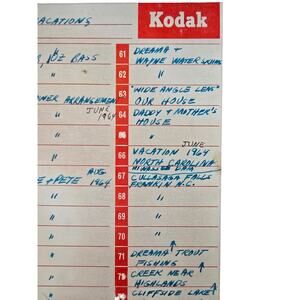 VACATIONS
Kodak
" 61 DREAMA +
, JOE BASS WAYNE WATER SKIING
" 62 "
" 63 "WIDE ANGLE LENS"
ARRANGEMENT OUR HOUSE
JUNE 1964 64 DADDY & MOTHER'S
HOUSE
" 65 "
" 66 VACATION JUNE 1964
NORTH CAROLINA
DAM
" AUG 67 CULLASAGA FALLS
E + PETE 1964 FRANKLIN N.C.
" 68 "
" 69 "
" 70 "
" 71 DREAMA ↑ TROUT
FISHING
" CREEK NEAR
HIGHLANDS
" CLIFFSIDE LAKE